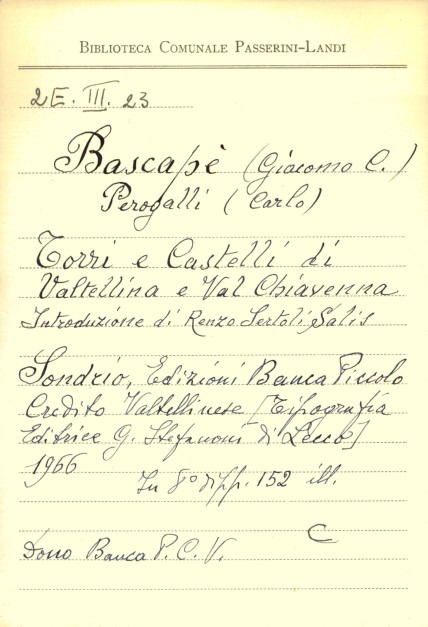 BIBLIOTECA COMUNALE PASSERINI-LANDI
2E. III. 23
Bascapè (Giacomo C.)
Perogalli (Carlo)
Torri e Castelli di
Valtellina e Val Chiavenna
Introduzione di Renzo Sertoli Salis
Sondrio, Edizioni Banca Piccolo
Credito Valtellinese [Tipografia
Editrice G. Stefanoni di Lecco]
1966
In 8° di pp. 152 ill.
C
Dono Banca P. C. V.